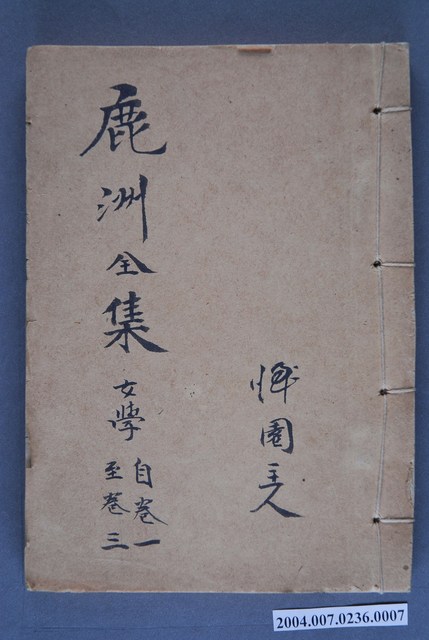 園主人
鹿洲全集
女學
自卷一
至卷三
2004.007.0236.0007